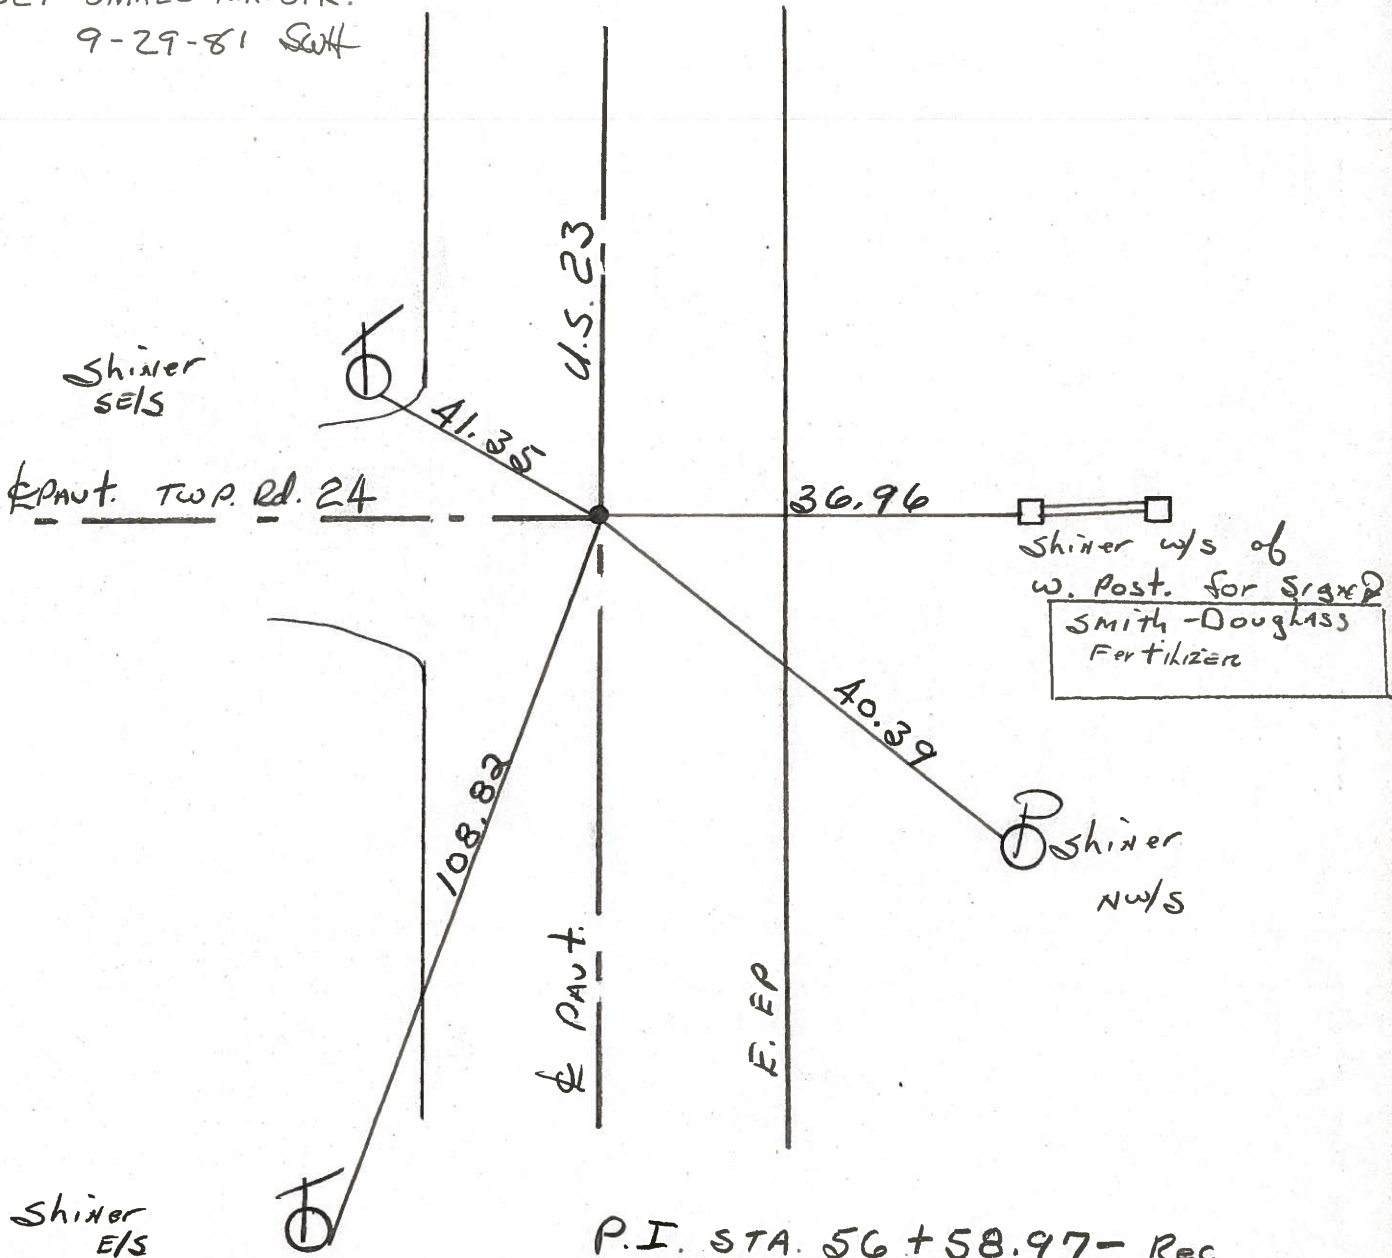 9-29-81 Scott
U.S. 23
Shiner
SE/S
41.35
℄ PAVt. TWP. Rd. 24
36.96
Shiner w/s of
w. Post. for Sign
Smith-Douglass
Fertilizer
40.39
108.82
P
Shiner
NW/S
℄ PAVt.
E. EP
T
T
Shiner
E/S
P.I. STA. 56+58.97- Rec